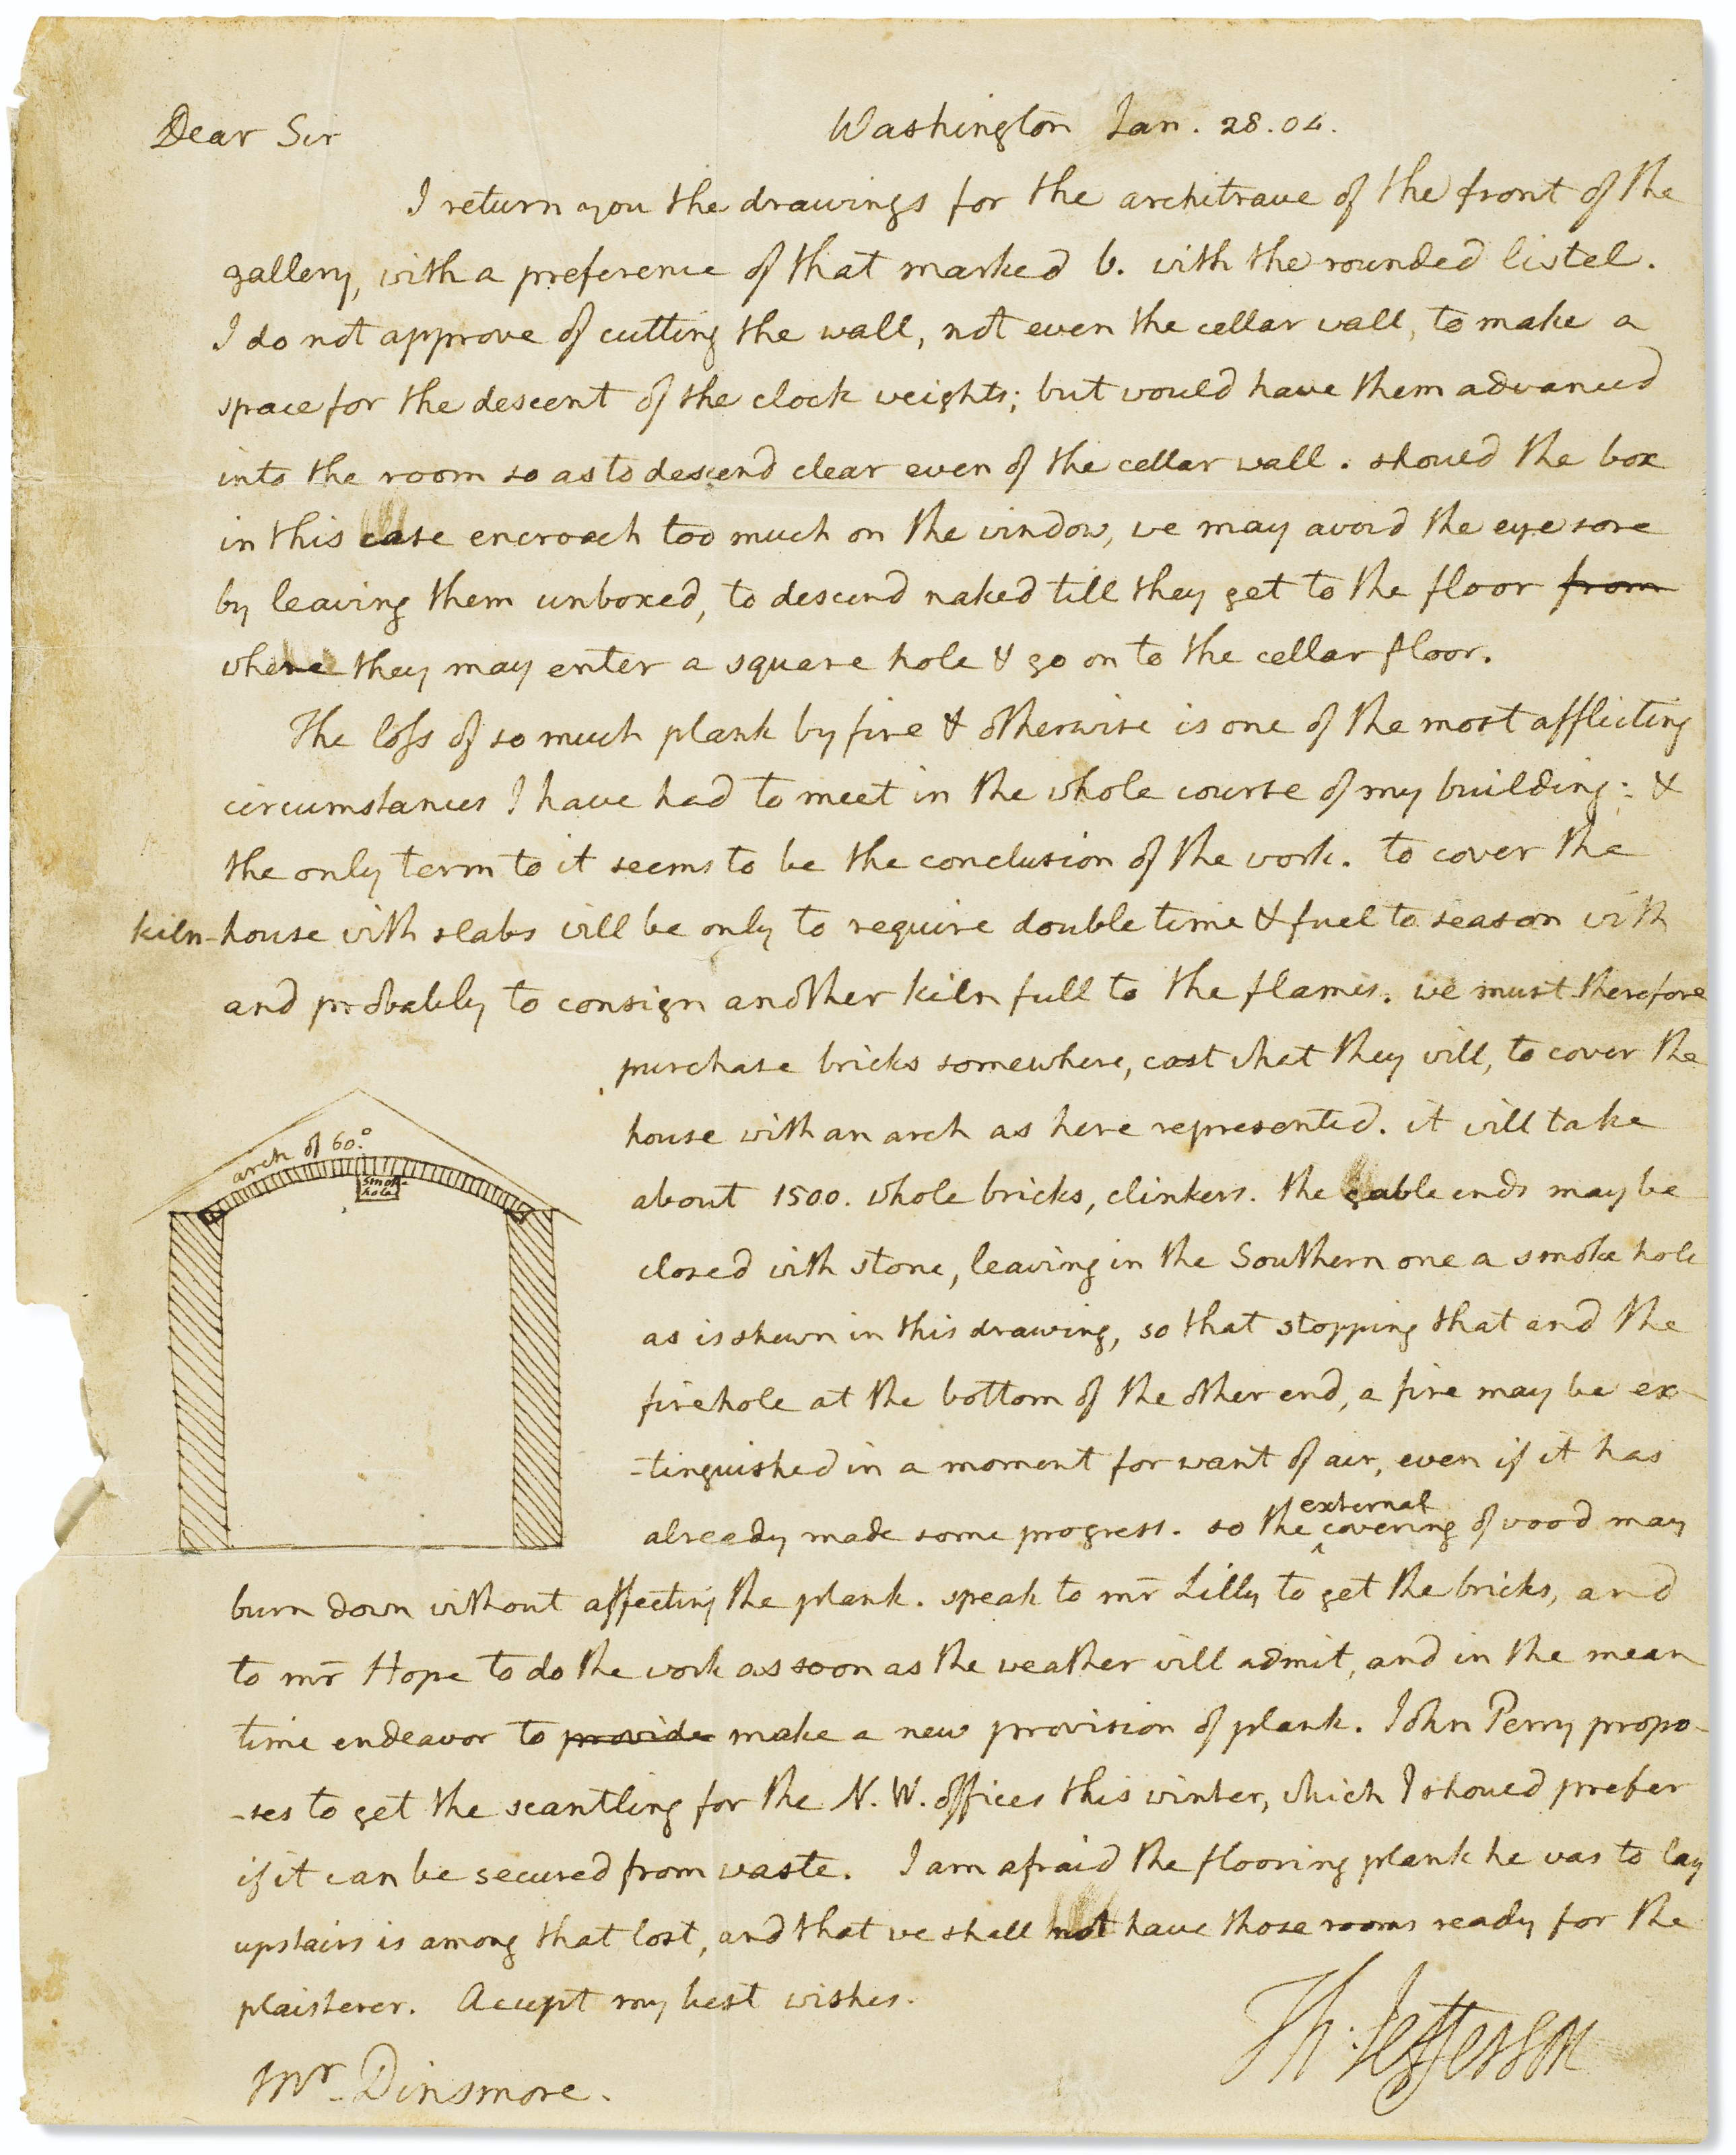 Dear Sir
Washington Jan. 28. 04.
I return you the drawings for the architrave of the front of the
gallery, with a preference of that marked b. with the rounded listel.
I do not approve of cutting the wall, not even the cellar wall, to make a
space for the descent of the clock weights; but would have them advanced
into the room so as to descend clear even of the cellar wall. should the box
in this case encroach too much on the window, we may avoid the eye sore
by leaving them unboxed, to descend naked till they get to the floor from
where they may enter a square hole & go on to the cellar floor.
The loss of so much plank by fire & otherwise is one of the most afflicting
circumstances I have had to meet in the whole course of my building: &
the only term to it seems to be the conclusion of the work. to cover the
kiln-house with slabs will be only to require double time & fuel to season with
and probably to consign another kiln full to the flames. we must therefore
purchase bricks somewhere, cost what they will, to cover the
house with an arch as here represented. it will take
about 1500. whole bricks, clinkers. the gable ends may be
closed with stone, leaving in the Southern one a smoke hole
as is shewn in this drawing, so that stopping that and the
firehole at the bottom of the other end, a fire may be ex-
-tinguished in a moment for want of air, even if it has
already made some progress. so the external covering of wood may
burn down without affecting the plank. speak to mr Lilly to get the bricks, and
to mr Hope to do the work as soon as the weather will admit, and in the mean
time endeavor to provide make a new provision of plank. John Perry propo-
-ses to get the scantling for the N.W. offices this winter, which I should prefer
if it can be secured from waste. I am afraid the flooring plank he was to lay
upstairs is among that lost, and that we shall not have those rooms ready for the
plaisterer. Accept my best wishes.
Th: Jefferson
Mr. Dinsmore.
arch of 60.°
smoke
hole